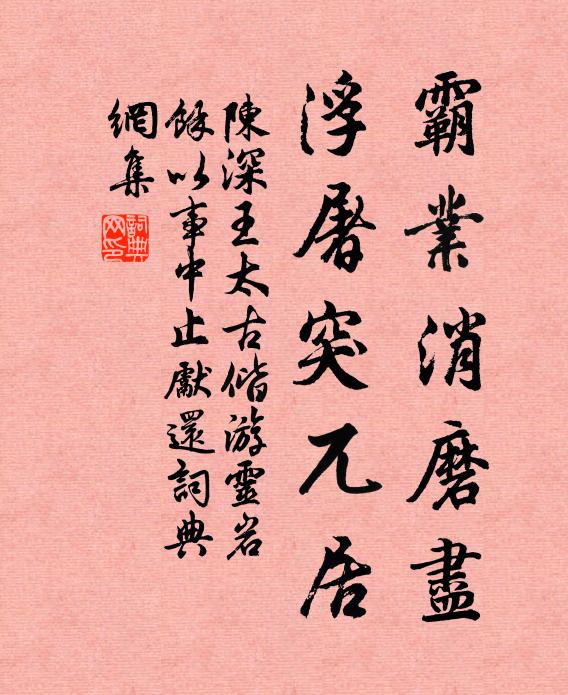 霸業消磨盡
浮屠突兀居
陳深王太古偕游靈岩
餘以事中止獻還詞典
網集
詞典網印